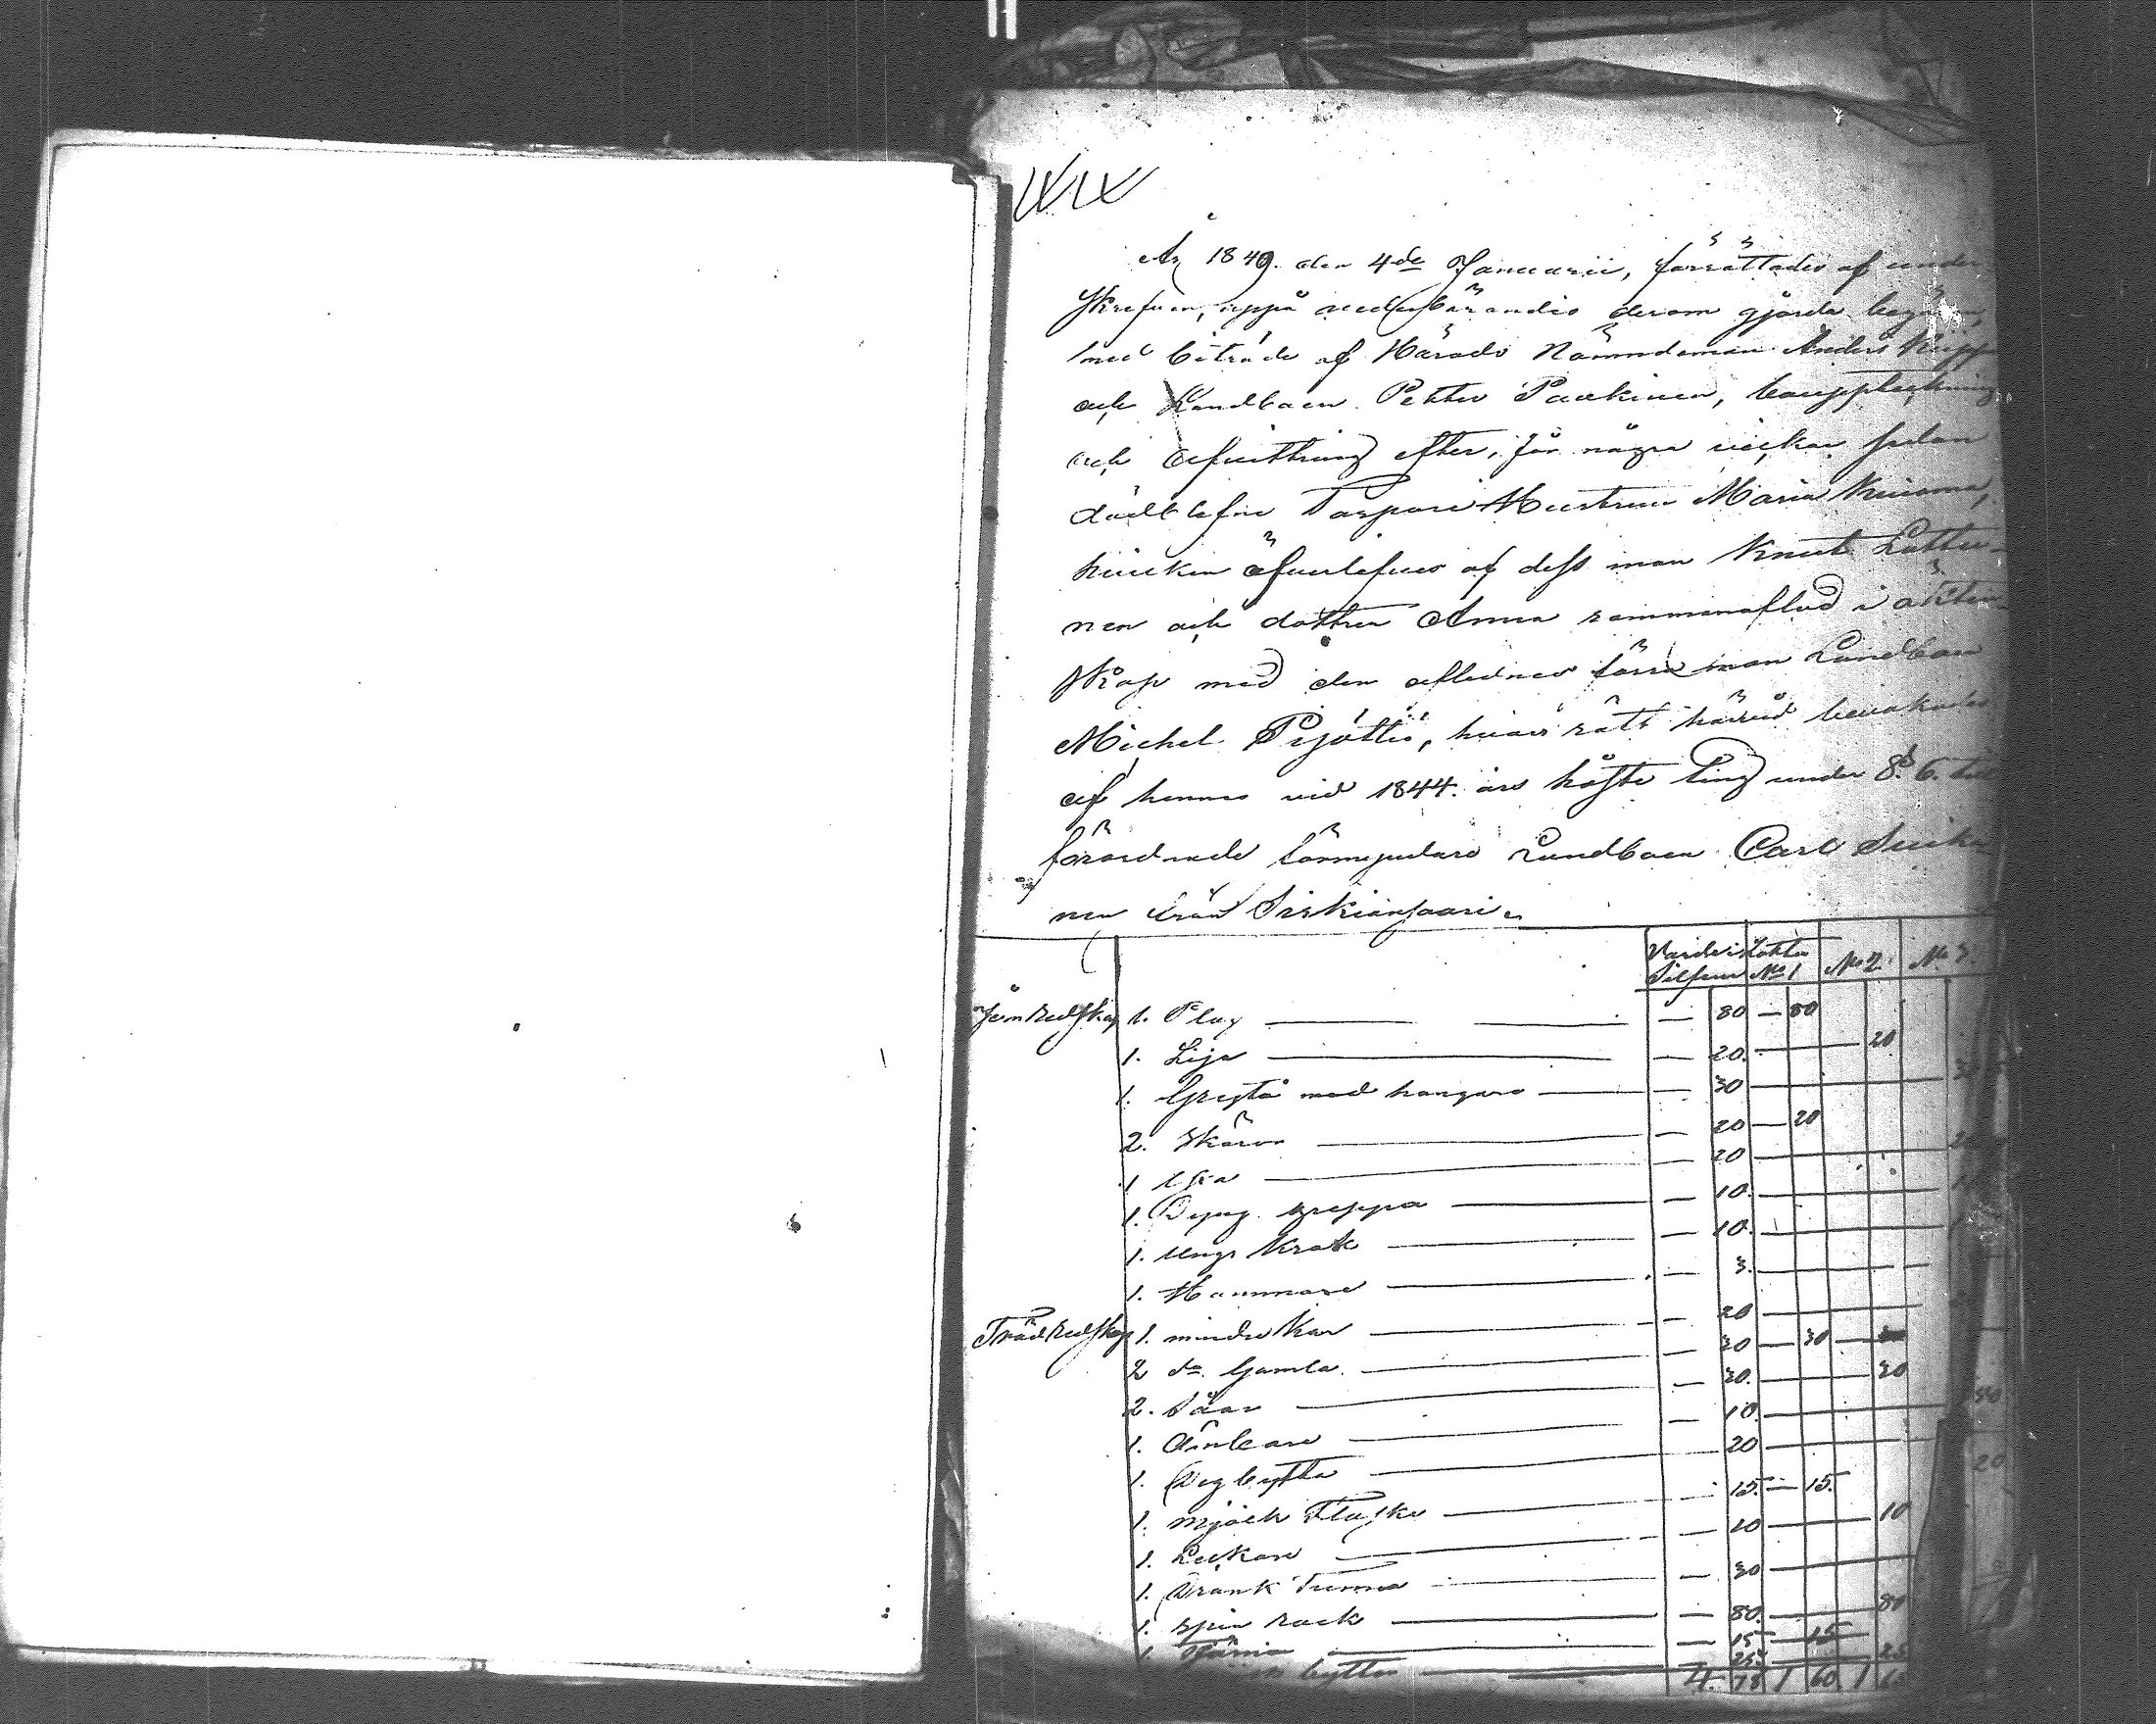 År 1849. den 4de Januarii, förrättades af under
skrefven, uppå vederbörandes derom gjorda begäran,
med biträde af Härads Nämndeman Anders
och Landboen Petter Paakinen, bouppteckning
och afvittring efter, för några veckor sedan
dödblefne Torpare Hustrun Maria
hvilken öfverlefves af dess man Knut Lattu-
nen och dottren Anna sammanaflad i äkten-
skap med den aflednes förra man Landboen
Michel Pyöttiö, hvars rätt härvid bevakades
af hennes vid 1844. års höste Ting under 8. 6.
förordnade förmyndare Landboen Carl Suika-
nen från Sirkiänsaari.
Värde i Lotten
Silfver No 1 No 2. No 3.
Jern Redskap 1. Plog — 80 — 80
1. Lija — 20. — 20
1. Gryta med hangare — 30 — 30
2. Skäror — 20 — 20
1 Yxa — 20 — 20
1. Dyng. greppa — 10. —
1. Ungs Krok — 10. —
1. Hammare — 3. —
Träd Redskap 1. mindre Kar — 20 —
2 do. Gamla. — 30 — 30 —
2. Såar — 20. — 20
1. Ämbare — 10. —
1. Deg bytta — 20 — 20
1. mjölk Flaska — 15. — 15.
1. Lackare — 10 — 10
1. Drank Tunna — 30 —
1. spin rock — 80. — 80
1. Tjärna — 15 — 15
bytta — 25. — 25
4. 78 1 60 1